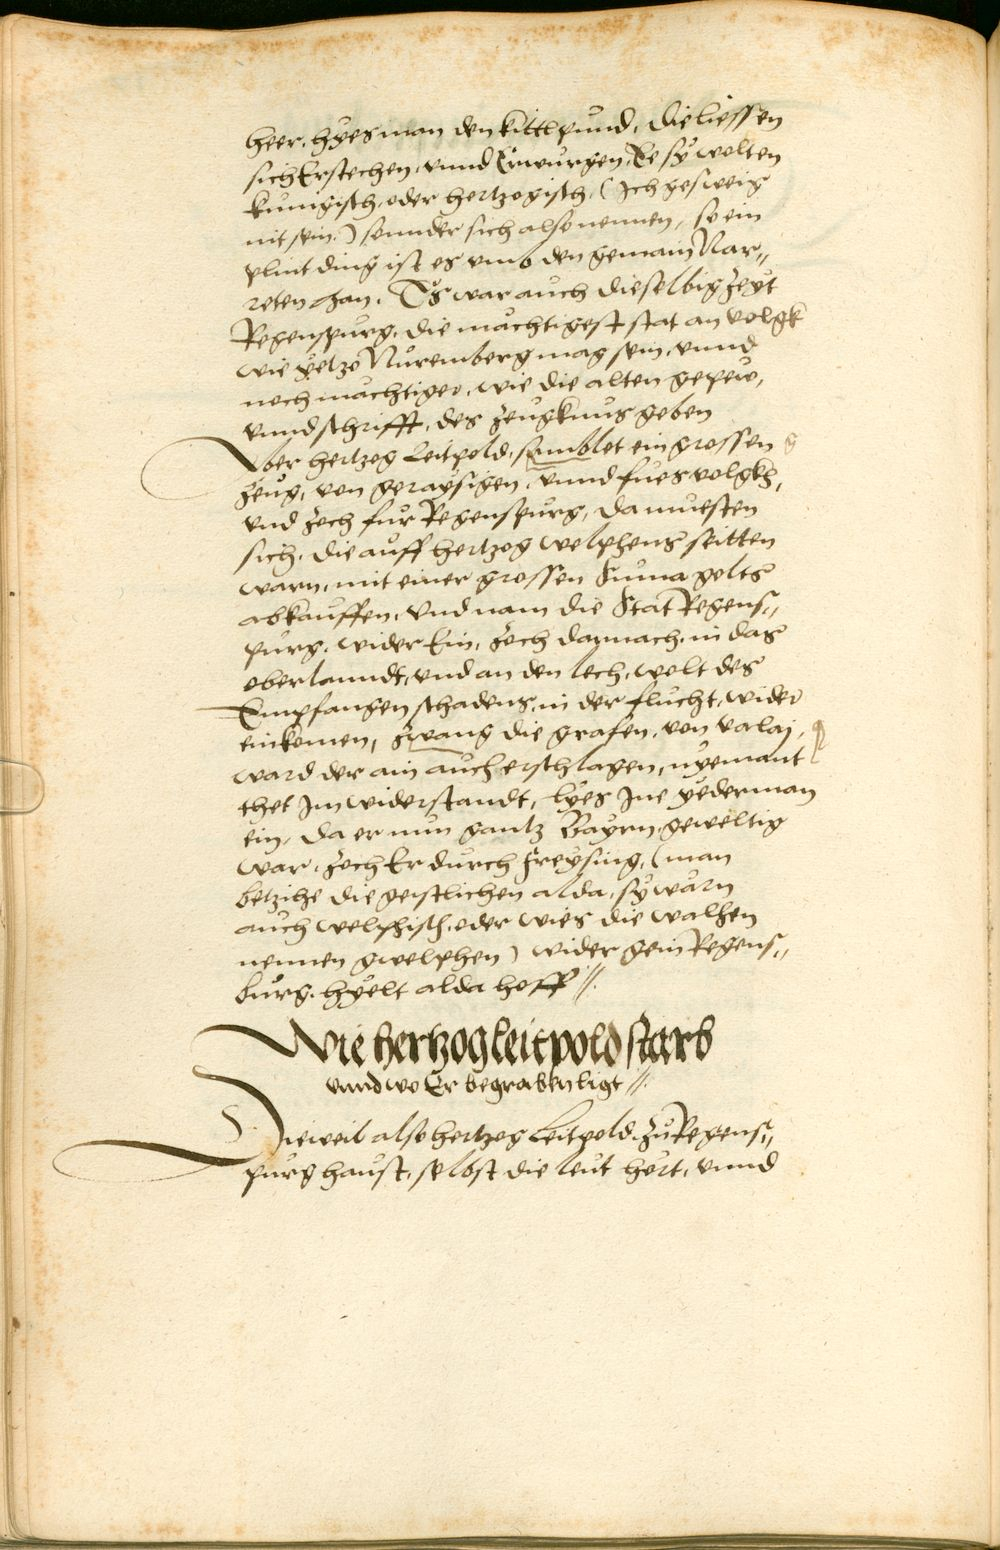 heer, hyes man den kittlpund, die liessen
sich Erstechen, unnd Erwurgen, Ee sy wolten
kunigisch, oder hertzogisch, (Ich gesweig
nit sein,) sonnder sich also nennen, so ein
plint ding ist es umb den gemain Nar-,,
reten han. Es war auch dieselbig Zeyt
Regenspurg, die mächtigest stat an volgk
wie yetzo Nüremberg mag sein, unnd
noch mächtiger, wie die alten gepew,
unnd schrifft, des Zeugknus geben
Aber hertzog Leitpold, samblet ein grossen
Zeug, von geraysigen, unnd fues volgkh,
und Zoch für Regenspurg, da muesten
sich, die auff hertzog welphens seitten
warn, mit einer grossen Suma gelts
abkauffen, und nam die Stat Regens-,,
purg, wider Ein, Zoch darnach, in das
oberlanndt, und an den lech, wolt des
Empfangen schadens, in der flucht, wider
einkomen, Zwang die grafen, von valaj,
ward der ain auch erschlagen, nyemant
thet Im widerstandt, lyes Ine yederman
ein, da er nun gantz Bayrn, geweltig
war, Zoch Er durch Freysing, (man
betzihe die geistlichen alda, sy warn
auch welphisch, oder wies die walhen
nennen gwelphen) wider gein Regens-,,
burg, hyelt alda hoff //.
Wie hertzog leitpold starb
unnd wo Er begraben ligt //.
Dieweil also hertzog Leitpold, Zu Regens-,,
purg haust, selbst die leut hört, unnd